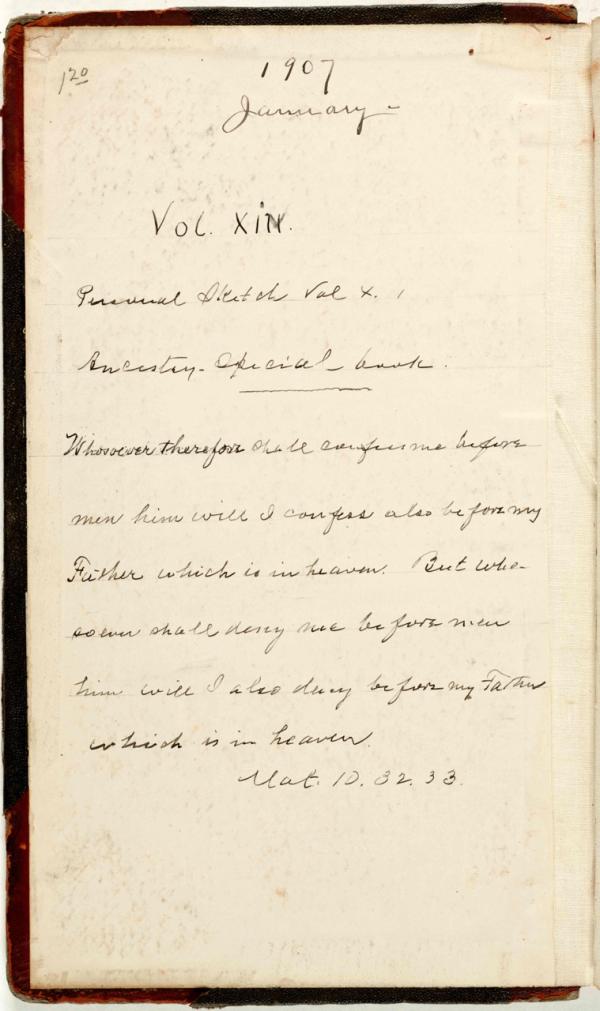 1 20
1907
January -
Vol. XIII.
Personal Sketch Vol X. 1
Ancestry - Special - book.
Whosoever therefore shall confess me before
men him will I confess also before my
Father which is in heaven. But who-
soever shall deny me before men
him will I also deny before my Father
which is in heaven.
Mat. 10. 32. 33.